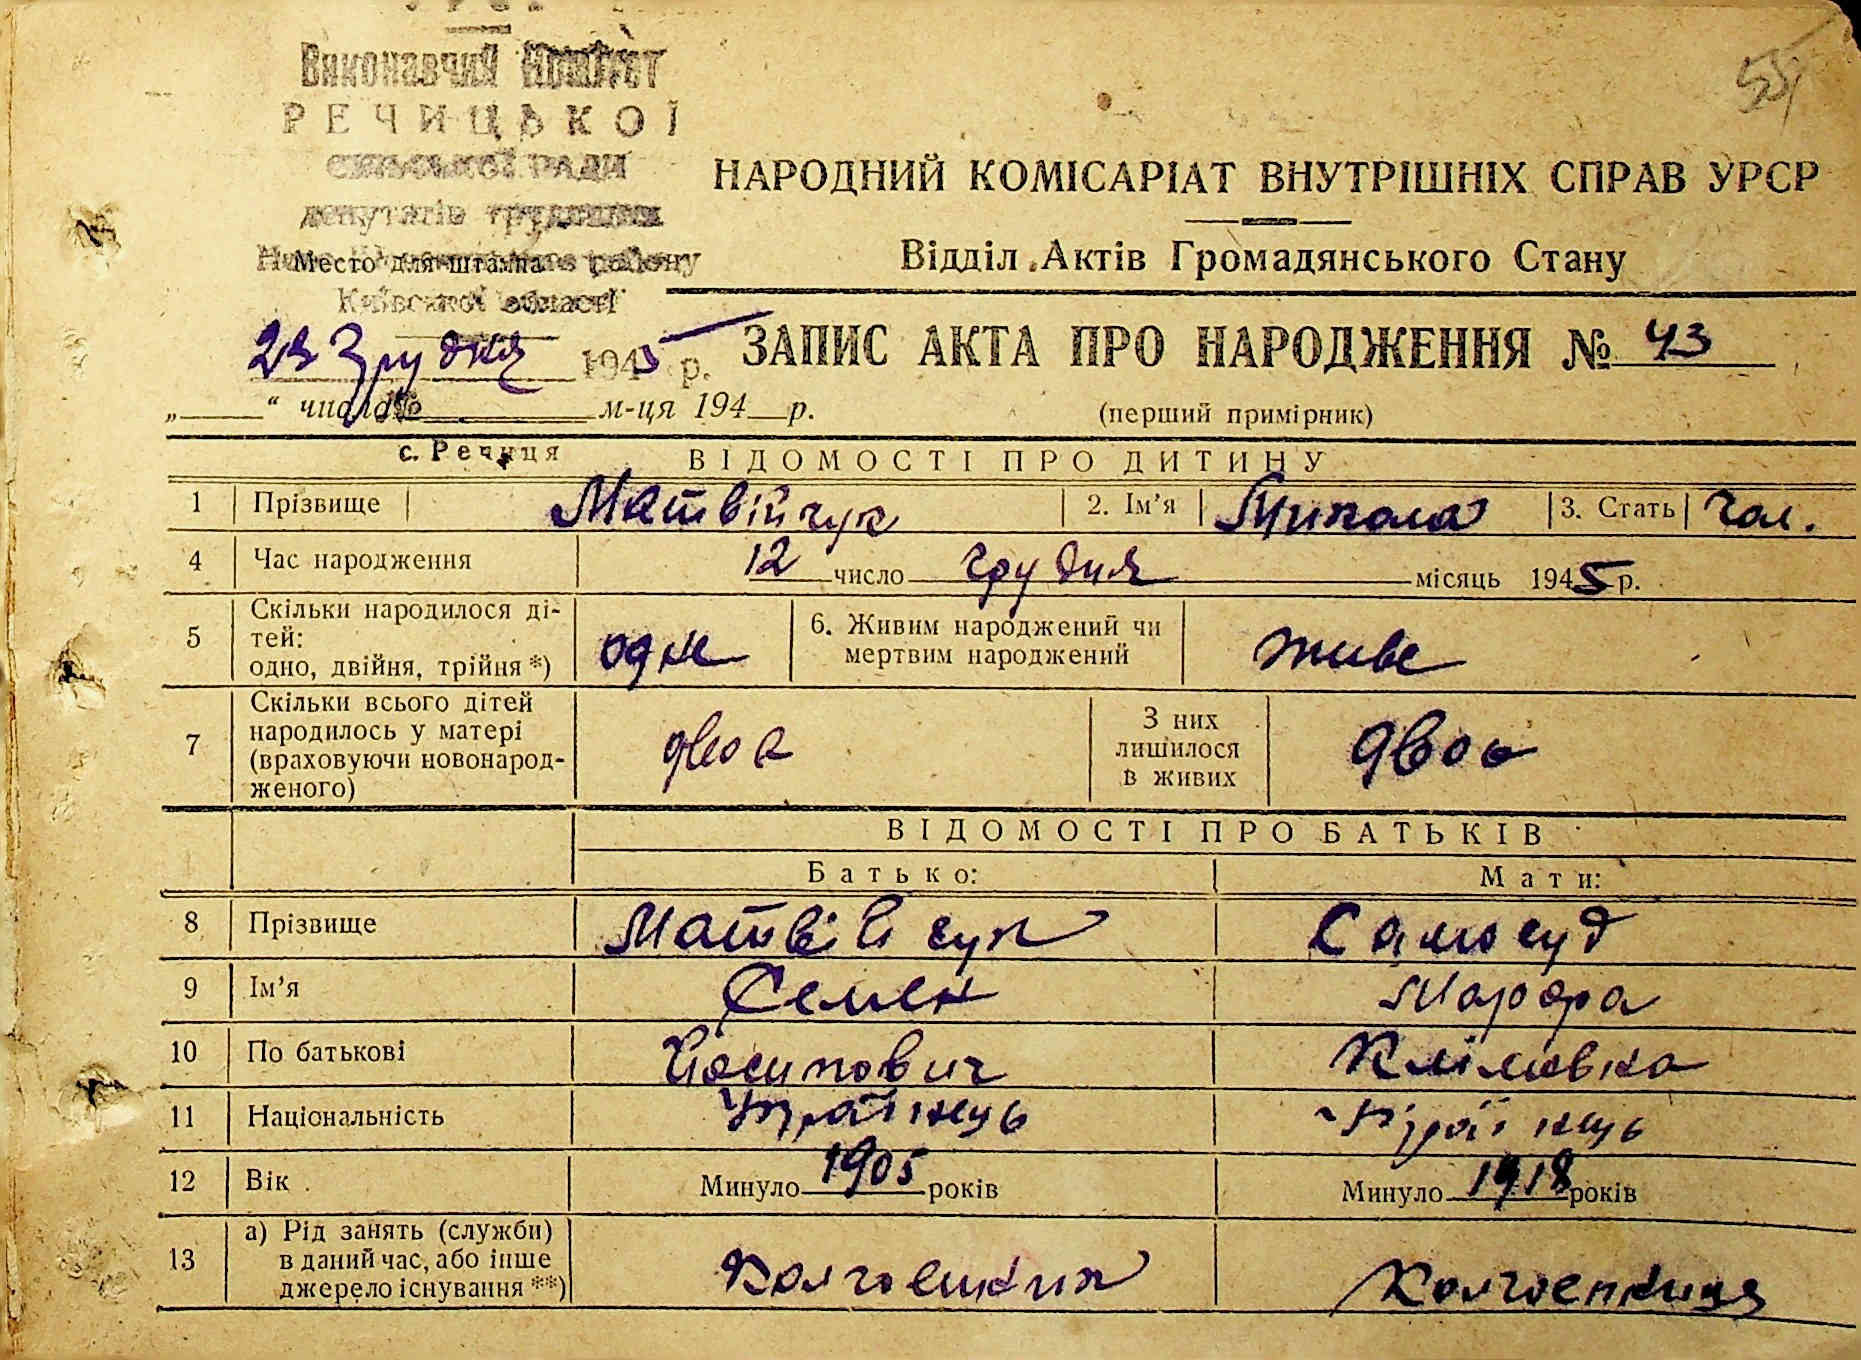 УРСР
Виконавчий Комітет
РЕЧИЦЬКОЇ
сільської РАДИ
депутатів трудящих
Место для штампа району
Київської області
55
НАРОДНИЙ КОМІСАРІАТ ВНУТРІШНІХ СПРАВ УРСР
Відділ Актів Громадянського Стану
23 Грудня 1945 р.
ЗАПИС АКТА ПРО НАРОДЖЕННЯ № 43
„ “ числа № м-ця 194 р.
(перший примірник)
с. Речиця
ВІДОМОСТІ ПРО ДИТИНУ
1 Прізвище Матвійчук 2. Ім’я Микола 3. Стать Чол.
4 Час народження 12 число грудня місяць 1945 р.
5 Скільки народилося ді-
тей:
одно, двійня, трійня *) одне
6. Живим народжений чи
мертвим народжений живе
7 Скільки всього дітей
народилось у матері
(враховуючи новонарод-
женого) двоє
З них
лишилося
в живих двоє
ВІДОМОСТІ ПРО БАТЬКІВ
Батько: Мати:
8 Прізвище Матвійчук Самосуд
9 Ім’я Семен Марфа
10 По батькові Йосипович Клімовна
11 Національність Українець Українець
12 Вік Минуло 1905 років Минуло 1918 років
13 а) Рід занять (служби)
в даний час, або інше
джерело існування **) Колгоспник Колгоспниця